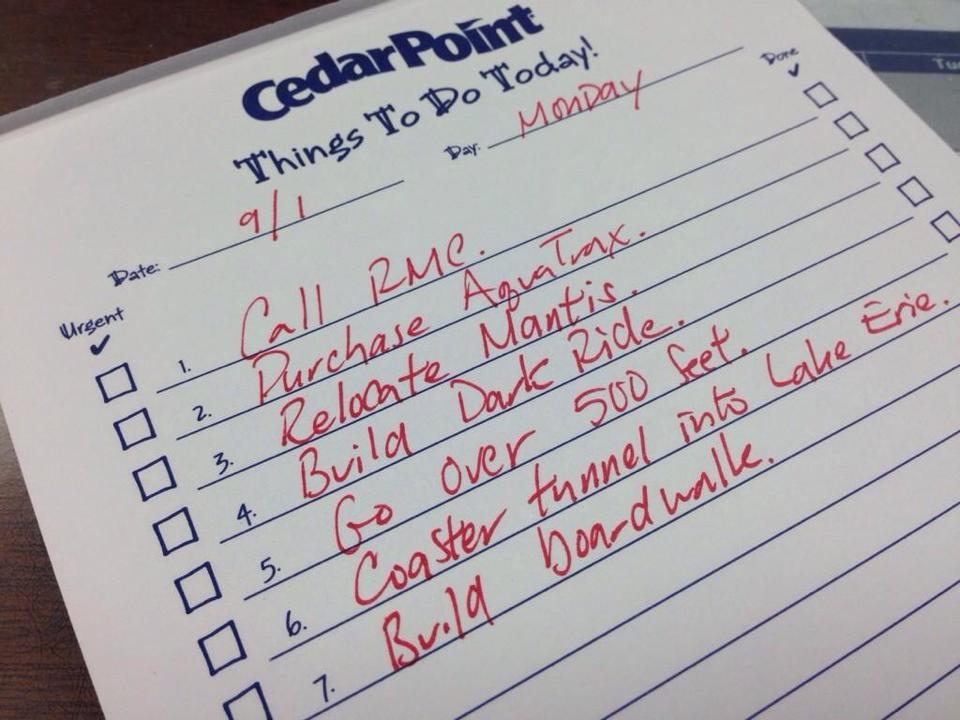 CedarPoint
Things To Do Today!
Date: 9/1 Day: MONDAY
Urgent Done
✓ ✓
1. Call RMC.
2. Purchase AquaTrax.
3. Relocate Mantis.
4. Build Dark Ride.
5. Go over 500 feet.
6. Coaster tunnel into Lake Erie.
7. Build boardwalk.
Tu